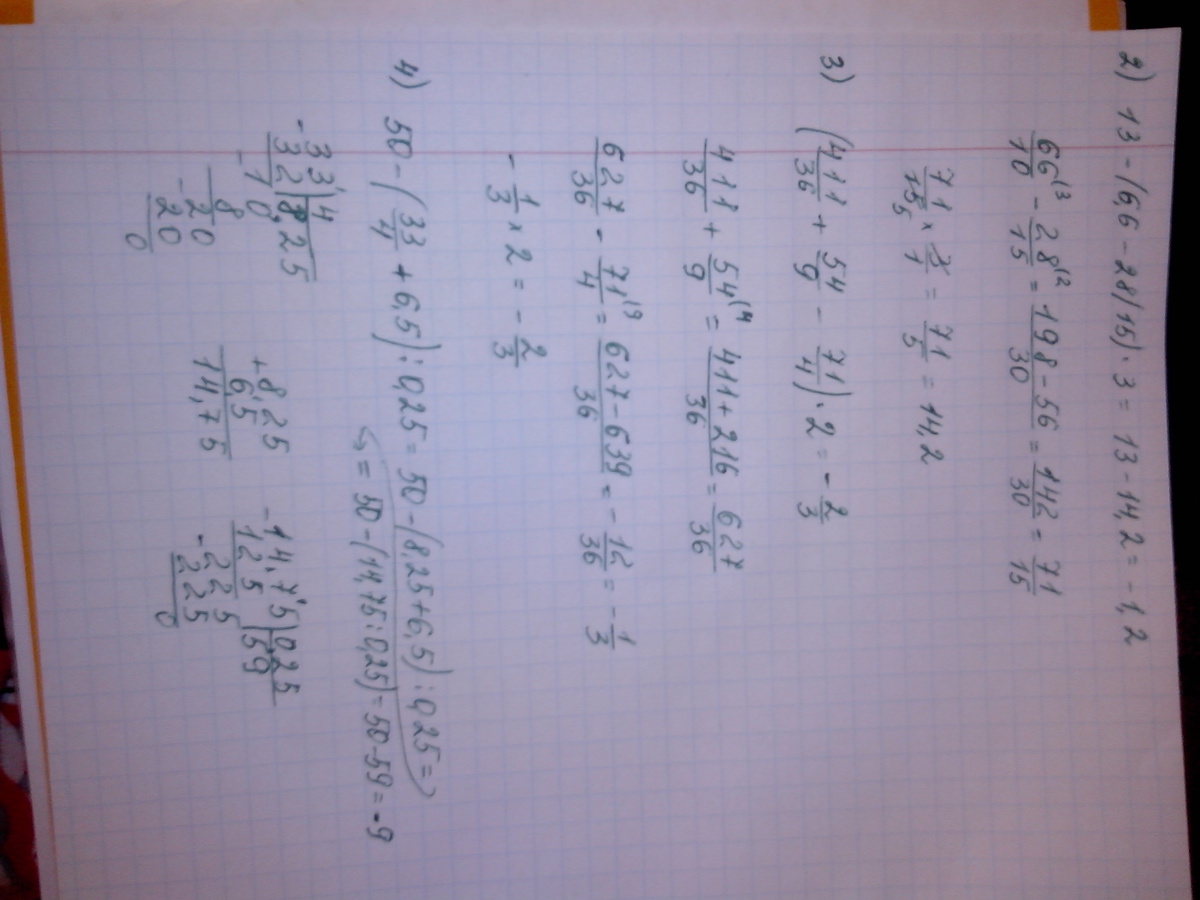 2) 13 - (6,6 - 28/15) · 3 = 13 - 14,2 = -1,2
66/10 (3 - 28/15 (2 = 198 - 56/30 = 142/30 = 71/15
71/15 5 × 3/1 = 71/5 = 14,2
3) (411/36 + 54/9 - 71/4) · 2 = - 2/3
411/36 + 54/9 (4 = 411 + 216/36 = 627/36
627/36 - 71/4 (9 = 627 - 639/36 = - 12/36 = - 1/3
- 1/3 × 2 = - 2/3
4) 50 - (33/4 + 6,5) : 0,25 = 50 - (8,25 + 6,5) : 0,25 =
= 50 - (14,75 : 0,25) = 50 - 59 = -9
- 33, | 4
32 | 8,25
- 10
8
- 20
20
0
+ 8,25
6,5
14,75
- 14,75 | 0,25
125 | 59
- 225
225
0